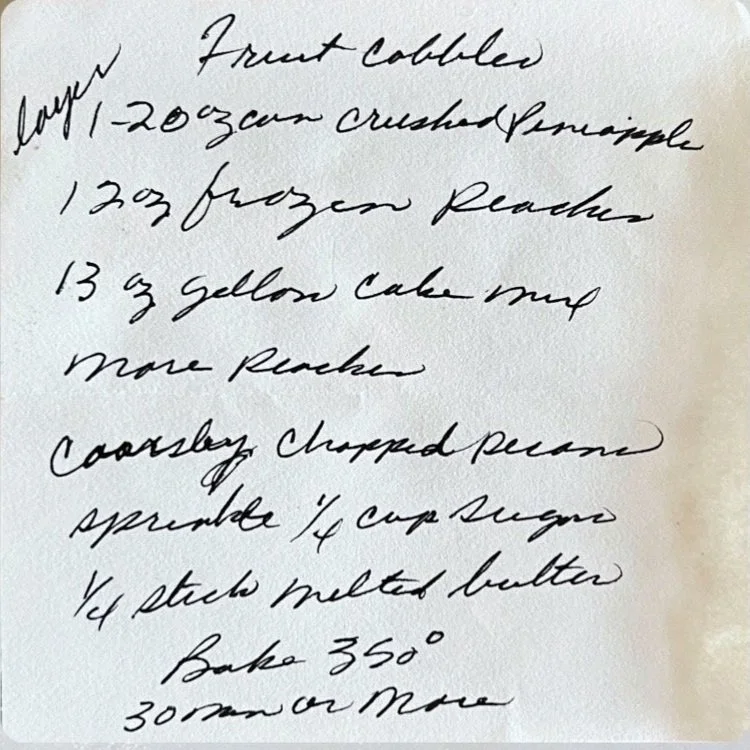 Fruit Cobbler
layer
1-20 oz can crushed Pineapple
12 oz frozen Peaches
13 oz yellow cake mix
more peaches
Coarsley chopped pecans
sprinkle 1/4 cup sugar
1/4 stick melted butter
Bake 350°
30 min or more